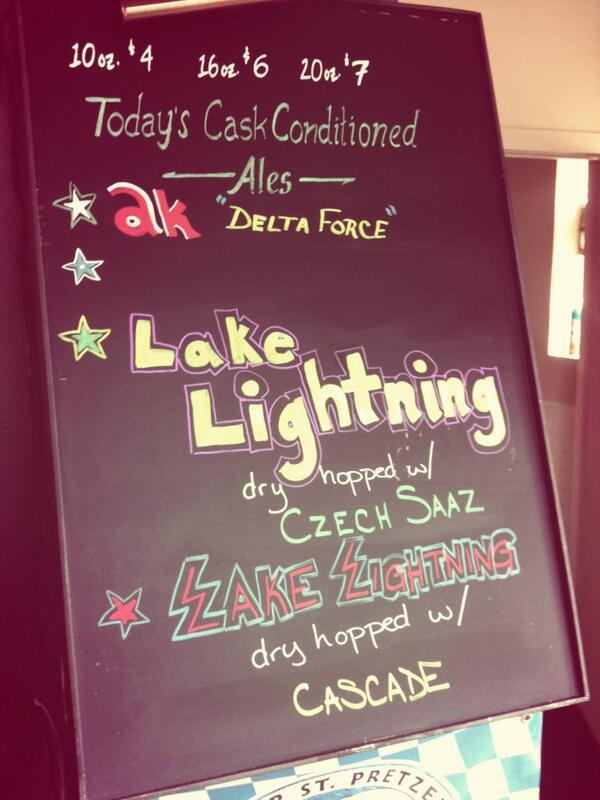 10oz. $4 16oz. $6 20oz. $7
Today's Cask Conditioned
Ales
ak "DELTA FORCE"
Lake
Lightning
dry hopped w/
CZECH SAAZ
LAKE LIGHTNING
dry hopped w/
CASCADE
ST. PRETZE